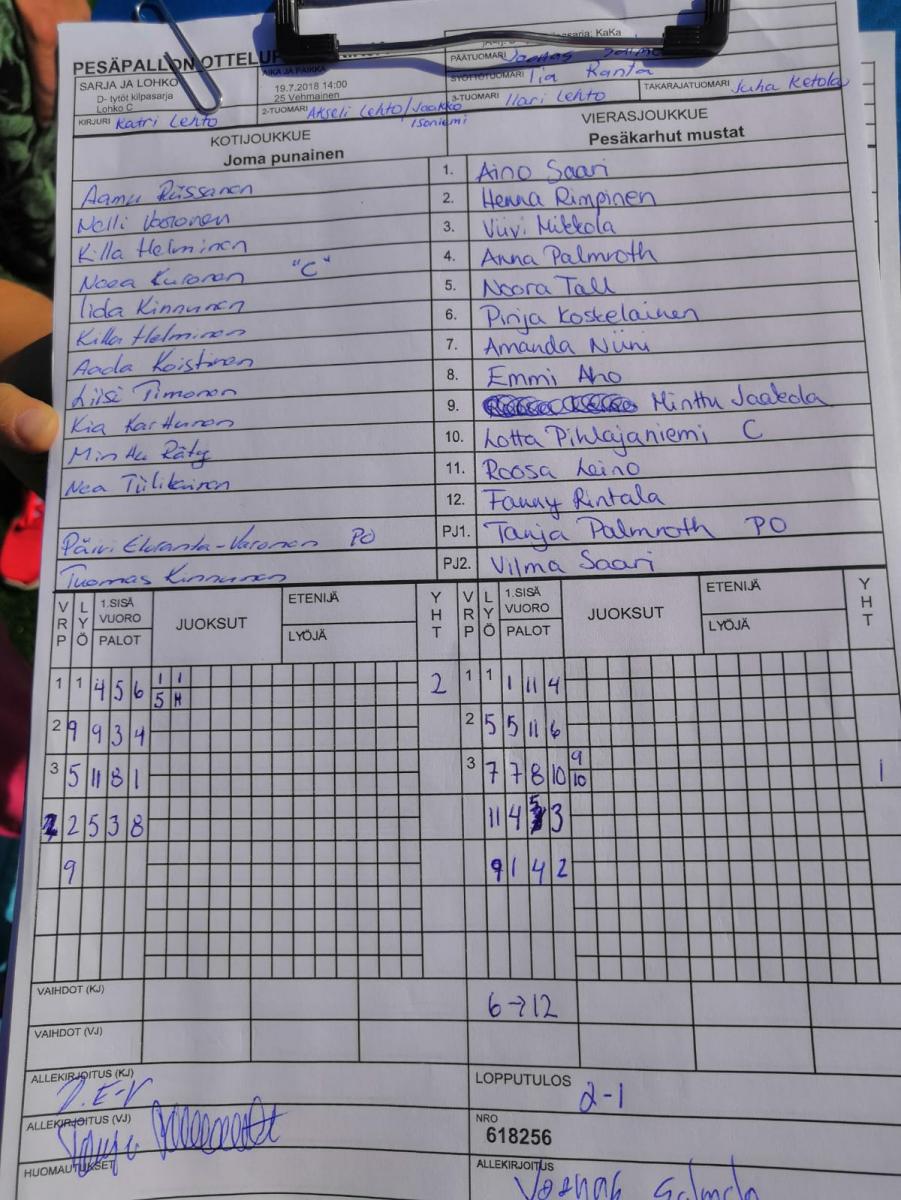 PESÄPALLON OTTELUP
SARJA JA LOHKO
D- tytöt kilpasarja
Lohko C
AIKA JA PAIKKA
19.7.2018 14:00
25 Vehmainen
KaKa
PÄÄTUOMARI Joonas Salmo
SYÖTTÖTUOMARI Iia Ranta
KIRJURI Katri Lehto
2-TUOMARI Akseli Lehto/Jaakko Isoniemi
3-TUOMARI Ilari Lehto
TAKARAJATUOMARI Juha Ketola
KOTIJOUKKUE
Joma punainen
VIERASJOUKKUE
Pesäkarhut mustat
Aamu Rissanen 1. Aino Saari
Nelli Varonen 2. Henna Rimpinen
Killa Helminen 3. Viivi Mikkola
Noea Kuronen "C" 4. Anna Palmroth
Iida Kinnunen 5. Noora Tall
Killa Helminen 6. Pinja Koskelainen
Aada Koistinen 7. Amanda Niini
Liisi Timonen 8. Emmi Aho
Kia Karttunen 9. Minttu Jaakola
Minttu Räty 10. Lotta Pihlajaniemi C
Nea Tiilikainen 11. Roosa Leino
12. Fanny Rintala
Päivi Ekranta-Varonen PO PJ1. Tanja Palmroth PO
Tuomas Kinnunen PJ2. Vilma Saari
VRP LYÖ 1.SISÄ VUORO PALOT JUOKSUT ETENIJÄ LYÖJÄ YHT VRP LYÖ 1.SISÄ VUORO PALOT JUOKSUT ETENIJÄ LYÖJÄ YHT
1 1 4 5 6 1 1 5 11 2 1 1 1 11 4
2 9 9 3 4 2 5 5 11 6
3 5 11 8 1 3 7 7 8 10 9 10 1
2 2 5 3 8 11 4 5 3
9 9 1 4 2
VAIHDOT (KJ) 6→12
VAIHDOT (VJ)
ALLEKIRJOITUS (KJ) P.E-V
LOPPUTULOS 2-1
ALLEKIRJOITUS (VJ)
NRO
618256
HUOMAUTUKSET
ALLEKIRJOITUS